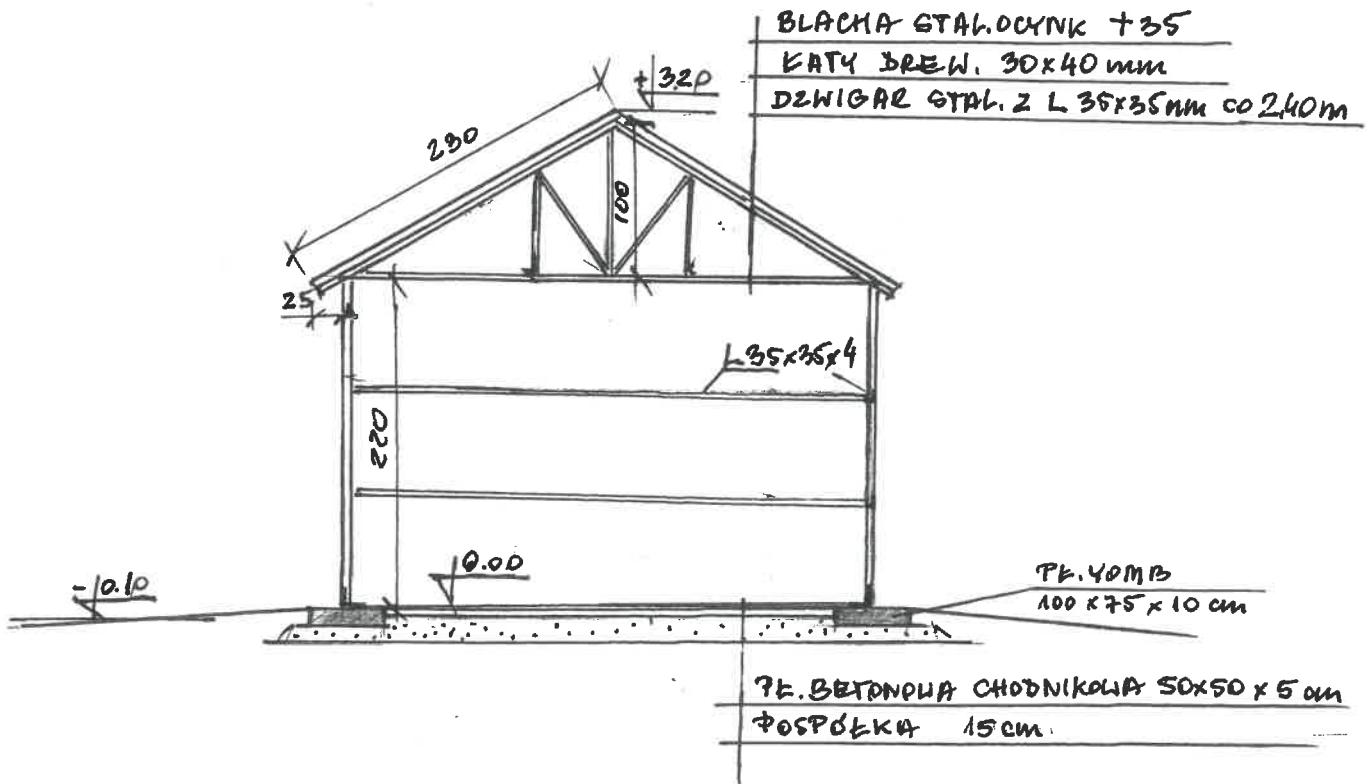 BLACHA STAL.OCYNK T35
ŁATY DREW. 30x40 mm
DZWIGAR STAL. Z L 35x35mm co 2,40m
+3.20
230
100
25
L 35x35x4
220
0.00
-0.10
PŁ. YOMB
100 x 75 x 10 cm
PŁ. BETONOWA CHODNIKOWA 50x50 x 5 cm
POSPÓŁKA 15 cm.